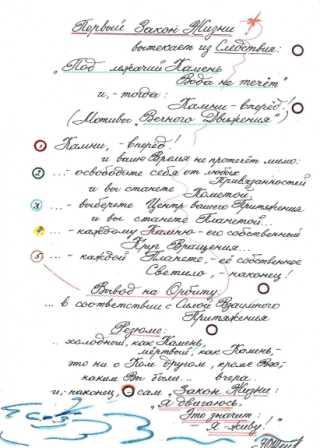 Первый Закон Жизни
вытекает из Следствия:
„Под лежачий Камень
Вода не течёт"
и,- тогда:
Камни - вперёд!
(Мотивы „Вечного Движения")
1 Камни, - вперёд!
и ваше Время не протечёт мимо:
2 ...- освободите себя от любых
Привязанностей
и вы станете Кометой.
3 ...- выберете Центр вашего Притяжения
и вы станете Планетой..
...- каждому Камню - его собственный
Круг Вращения...
5 ...- каждой Планете,- её собственное
Светило, - наконец!
Вывод на Орбиту:
... в соответствии с Силой Взаимного
Притяжения
Резюме:
.. холодный, как Камень,
мёртвый, как Камень,-
это ни о Ком другом, кроме Вас,
каким Вы были... вчера
и,- наконец, сам „Закон Жизни:
„Я двигаюсь.
Это значит:
Я живу!